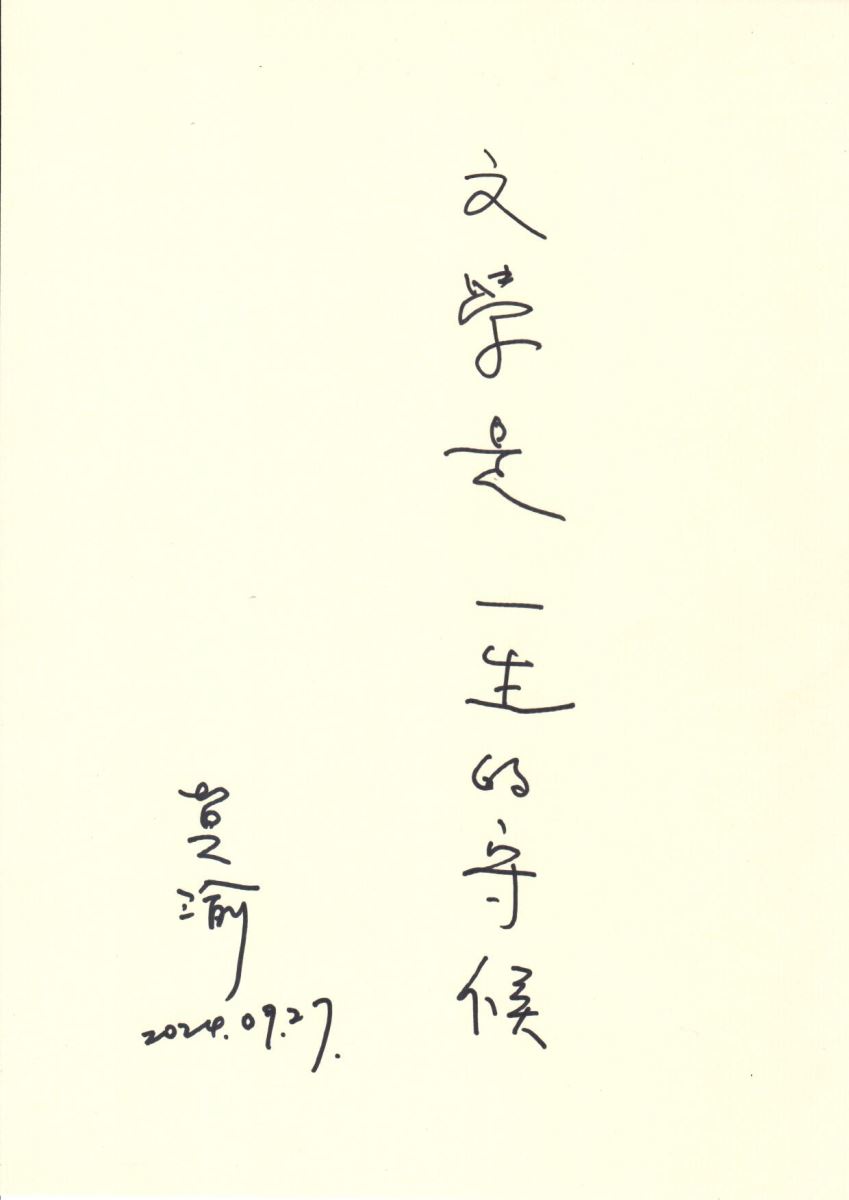 文學是一生的守候
莫渝
2024.09.27.